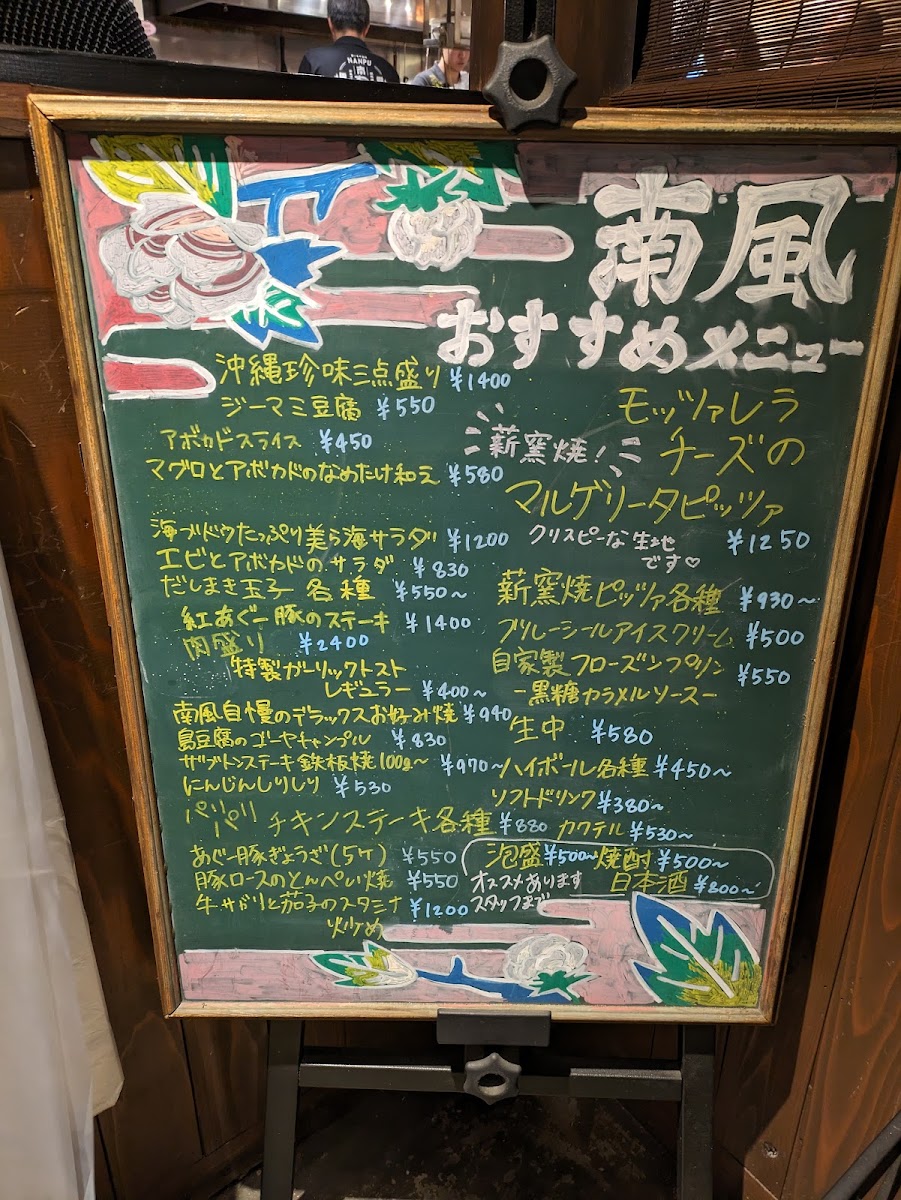 NANPU
南風
おすすめメニュー
沖縄珍味三点盛り ¥1400
ジーマミ豆腐 ¥550
アボカドスライス ¥450
マグロとアボカドのなめたけ和え ¥580
海ブドウたっぷり美ら海サラダ ¥1200
エビとアボカドのサラダ ¥830
だしまき玉子 各種 ¥550~
紅あぐー豚のステーキ ¥1400
肉盛り ¥2400
特製ガーリックトスト
レギュラー ¥400~
南風自慢のデラックスお好み焼 ¥940
島豆腐のゴーヤチャンプル ¥830
ザブトンステーキ鉄板焼100g~ ¥970~
にんじんしりしり ¥530
パリパリ チキンステーキ各種 ¥880
あぐー豚ぎょうざ(5ケ) ¥550
豚ロースのとんぺい焼 ¥550
牛サガリと茄子のスタミナ ¥1200
炒め
モッツァレラ
薪窯焼! チーズの
マルゲリータピッツァ
クリスピーな生地 ¥1250
です♡
薪窯焼ピッツァ各種 ¥930~
ブルーシールアイスクリーム ¥500
自家製フローズンプリン ¥550
-黒糖カラメルソース-
生中 ¥580
ハイボール各種 ¥450~
ソフトドリンク ¥380~
カクテル ¥530~
泡盛 ¥500~ 焼酎 ¥500~
オススメあります 日本酒 ¥800~
スタッフまで